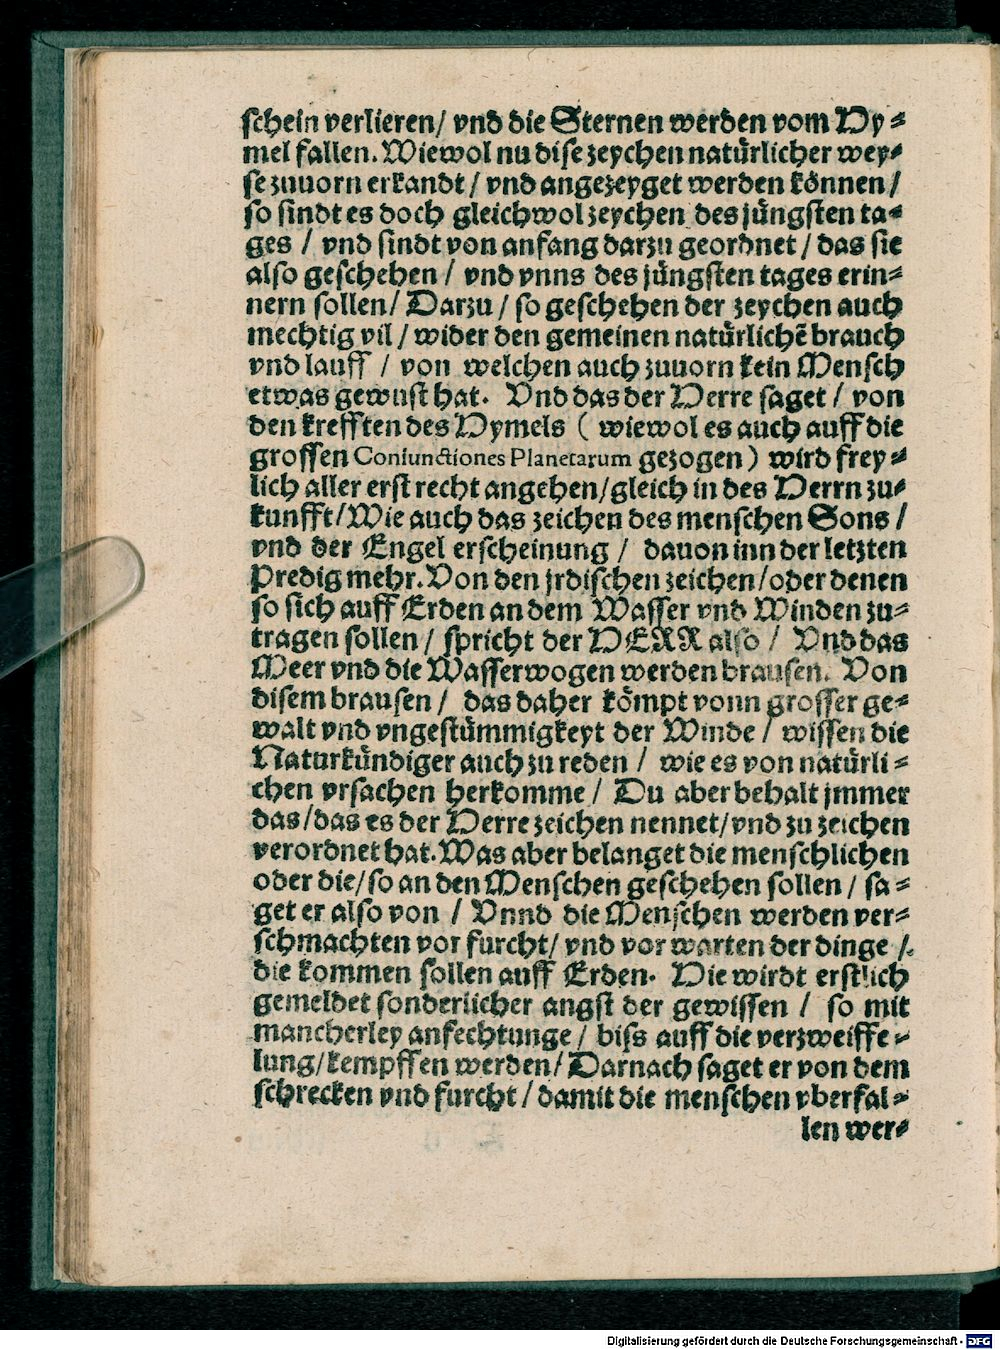 schein verlieren/ vnd die Sternen werden vom Hy⸗
mel fallen. Wiewol nu dise zeychen natürlicher wey⸗
se zuuorn erkandt / vnd angezeyget werden können /
so sindt es doch gleichwol zeychen des jüngsten ta⸗
ges / vnd sindt von anfang darzu geordnet / das sie
also geschehen / vnd vnns des jüngsten tages erin⸗
nern sollen/ Darzu / so geschehen der zeychen auch
mechtig vil / wider den gemeinen natürlichẽ brauch
vnd lauff / von welchen auch zuuorn kein Mensch
etwas gewust hat. Vnd das der Herre saget / von
den krefften des Hymels ( wiewol es auch auff die
grossen Coniunctiones Planetarum gezogen ) wird frey⸗
lich aller erst recht angehen/gleich in des Herrn zu⸗
kunfft/Wie auch das zeichen des menschen Sons /
vnd der Engel erscheinung / dauon inn der letzten
Predig mehr. Von den jrdischen zeichen/oder denen
so sich auff Erden an dem Wasser vnd Winden zu⸗
tragen sollen / spricht der HERR also / Vnd das
Meer vnd die Wasserwogen werden brausen. Von
disem brausen / das daher kömpt vonn grosser ge⸗
walt vnd vngestümmigkeyt der Winde / wissen die
Naturkündiger auch zu reden / wie es von natürli⸗
chen vrsachen herkomme / Du aber behalt jmmer
das/das es der Herre zeichen nennet/vnd zu zeichen
verordnet hat. Was aber belanget die menschlichen
oder die/so an den Menschen geschehen sollen / sa⸗
get er also von / Vnnd die Menschen werden ver⸗
schmachten vor furcht/ vnd vor warten der dinge /
die kommen sollen auff Erden. Hie wirdt erstlich
gemeldet sonderlicher angst der gewissen / so mit
mancherley anfechtunge / biss auff die verzweiffe⸗
lung/kempffen werden/ Darnach saget er von dem
schrecken vnd furcht / damit die menschen vberfal⸗
len wer⸗
Digitalisierung gefördert durch die Deutsche Forschungsgemeinschaft - DFG